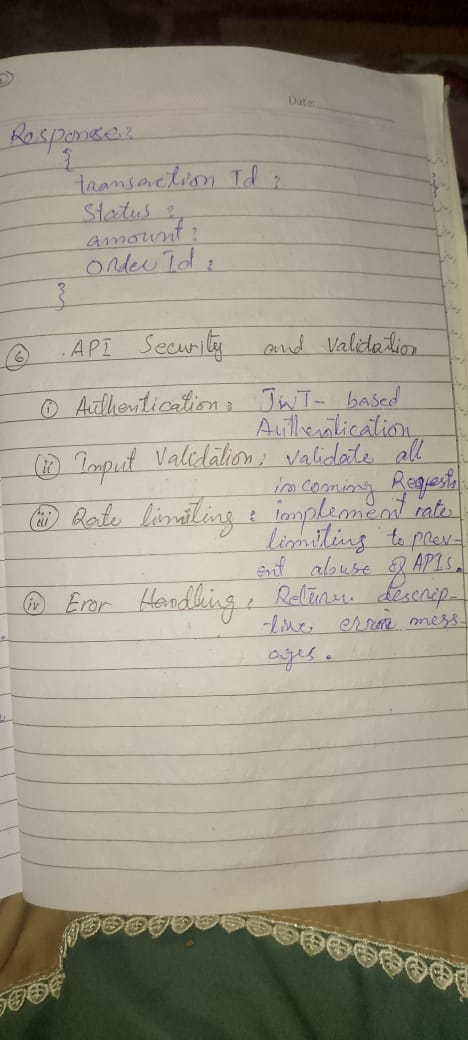 Date:
Response:
{
transaction Id :
Status :
amount :
Order Id :
}
⑥ . API Security and Validation
ⓘ Authentication : JWT- based
Authentication
(ii) Input Validation : validate all
incoming Requests
(iii) Rate limiting : implement rate
limiting to prev-
ent abuse of APIs.
(iv) Eror Handling : Return descrip-
tive error mess-
ages.